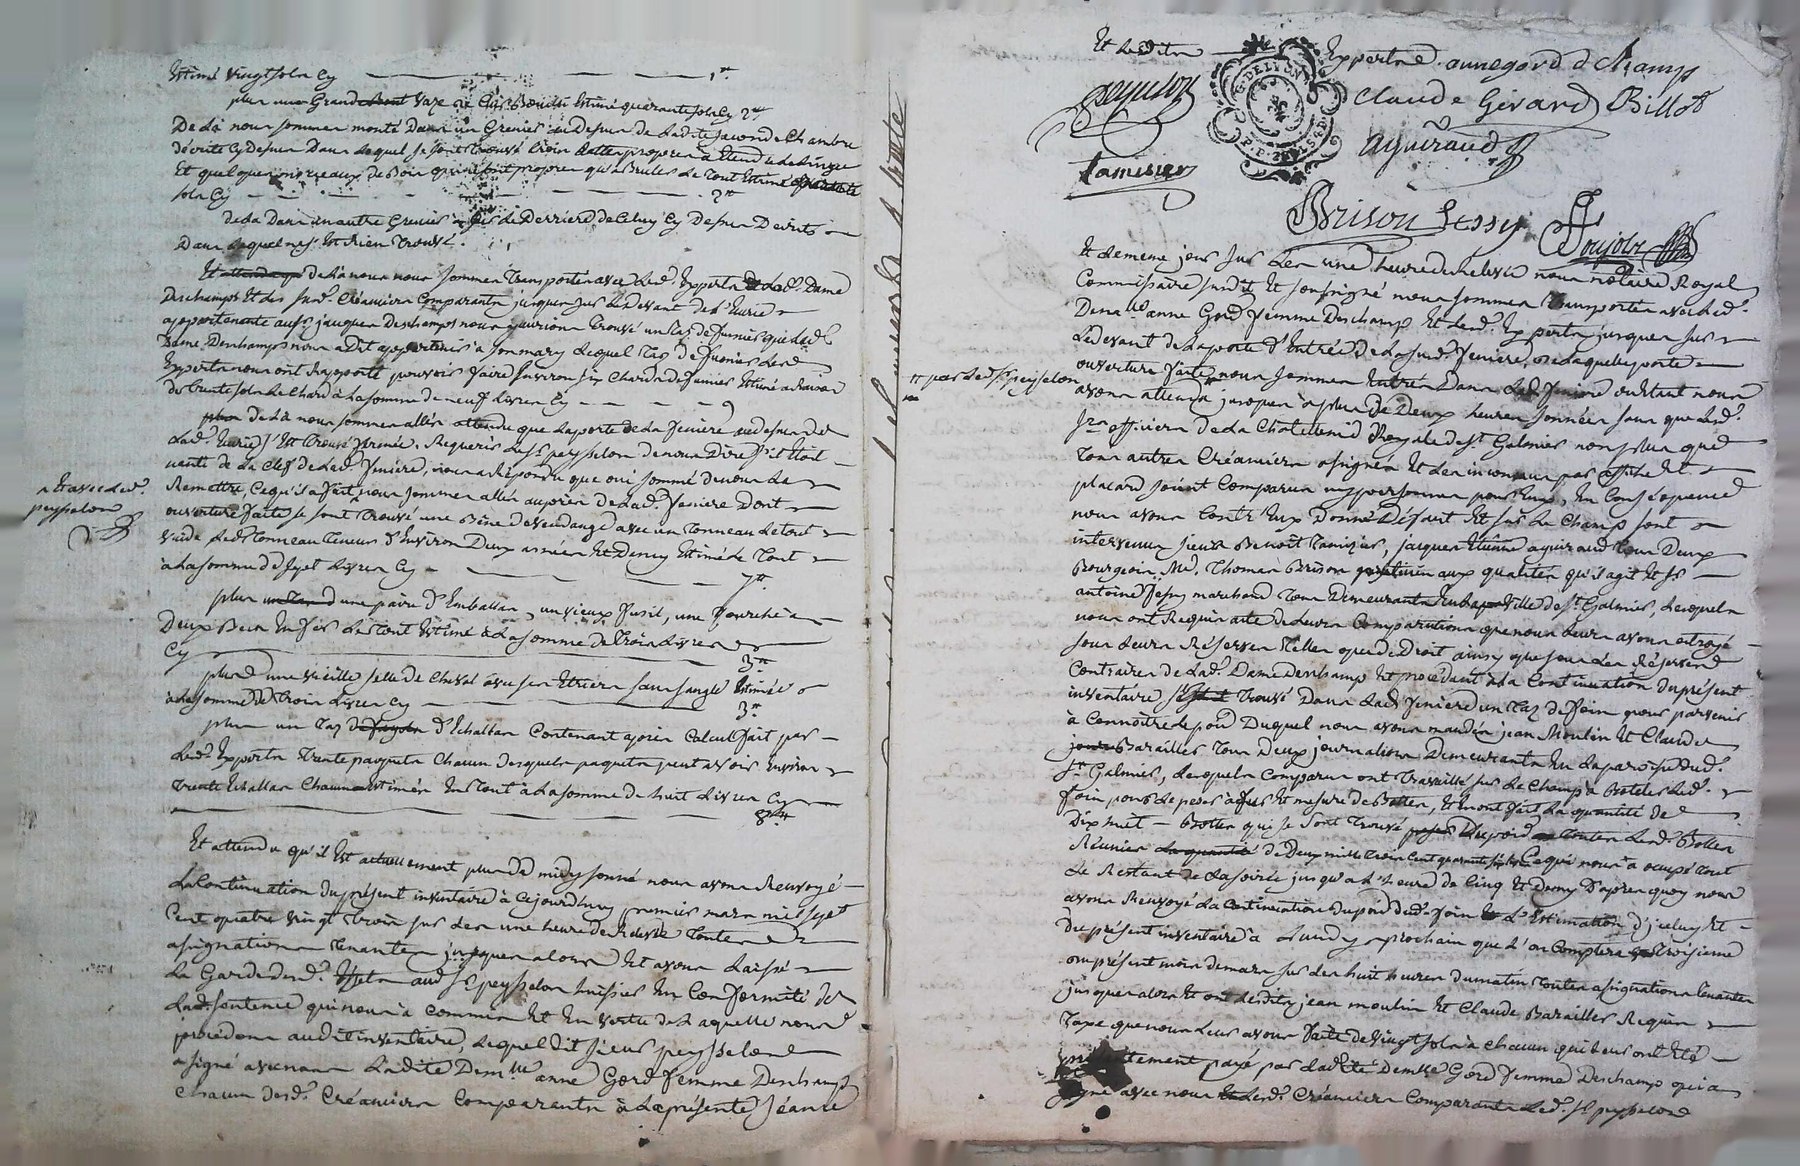 Estimé vingt sols Cy 1ʰ
plus une Grand vaze Estimé quarante sols Cy 2ʰ
De Là nous sommes monté Dans un Grenier au Dessus de Ladite seconde Chambre
décrite Cy Dessus Dans Lequel se sont Trouvé propres à Etendre le Linge
Et quelques morceaux de Bois qui ne sont propres qu'à Bruler Le Tout Estimé
sols Cy 2ʰ
de Là Dans un autre Grenier sur Le Derriere de Celuy Cy Dessus Décrit
Dans Lequel n'est Et Rien Trouvé.
De Là nous nous sommes Transportés avec Lesd. Experts Lad. Dame
Deschamps Et Les susd. Créanciers Comparants jusques sur Le Devant de L'Ecurie
appartenante aud. jacques Deschamps nous y aurions Trouvé un Tas de fumier que Lad.
Dame Deschamps nous a Dit appartenir à son mary Lequel Tas De fumier Lesd.
Experts nous ont Rapporté pouvoir faire Environ six Chards de fumier Estimé à Raison
de Trente sols Le Chard à La somme de neuf Livres Cy 9
De Là nous sommes allés attendu que La porte de La feniere au dessus de
Lad. Ecurie s'Est Trouvé fermée, Requeris Led. Sr. peysselon de nous Dire s'il Etoit
nanti de La Clef de Lad. feniere, nous a Répondu que oui sommé de nous La
Remettre, Ce qu'il a fait, nous sommes allés auprès de Lad. feniere Dont
ouverture faite se sont Trouvé une Bêne de vendange avec un Tonneau Le tout
vuide Led. Tonneau Teneur d'Environ Deux asnées Et Demy Estimé Le Tout
à La somme de sept Livres Cy 7ʰ
plus une paire d'Emballes, un vieux fusil, une fourche à
Deux Becs En fer Le Tout Estimé à La somme de trois Livres
Cy 3ʰ
plus une vieille selle de Cheval avec ses Etriers sans sangle Estimée
à La somme de trois Livres Cy 3ʰ
plus un Tas d'Echallas Contenant après Calcul fait par
Lesd. Experts Trente paquets Chacun desquels paquets peut avoir Environ
Trente Echallas Chacun Estimés En Tout à La somme de huit Livres Cy
8ʰ
Et attendu qu'il Est actuellement plus de midy sonné nous avons Renvoyé
La Continuation du présent inventaire à Cejourdhuy premier mars mil sept
Cent quatre vingt trois sur Les une heure de Relevée Toutes
assignations Tenantes jusques alors Et avons Laissé
La Garde desd. Effets aud. Sr. peysselon huissier En Conformité de
Lad. sentence qui nous à Commis Et En vertu de Laquelle nous
procedons audit inventaire, Lequel Dit sieur peysselon
a signé avec nous Ladite Demˡˡᵉ anne Gord femme Deschamps
Chacun desd. Créanciers Comparants à La présente séance
et avec Led.
peysselon
Et Lesdits Experts
anne gord d champs
peysselon
G. DE LYON
Claude Girard Billot
aguiraud
Tamisier
Brison Jessy
Et le meme jour sur Les une heure de Relevée nous notaire Royal
Commissaire susdit Et soussigné nous sommes Transportés avec Lad.
Demˡˡᵉ anne Gord femme Deschamps Et Lesd. Experts jusques sur
Le devant de La porte d'Entrée de La susd. feniere, de Laquelle porte
ouverture faite nous sommes Entrés Dans Lad. feniere ou Etant nous
par Led. Sr. peysselon
avons attendu jusques à plus de Deux heures sonnées sans que Led.
Srs. officiers de La Chatellenie Royale de St. Galmier non plus que
Tous autres Créanciers assignés Et Les inconnus par affiche Et
placard soient Comparus ny personnes pour Eux, En Conséquence
nous avons Contr'Eux Donné Défaut Et sur Le Champ sont
intervenus sieurs Benoit Tamisier, jacques Etienne aguiraud Tous Deux
Bourgeois, Me. Thomas Brison aux qualités qu'il agit Et Sr.
antoine Jessy marchand Tous Demeurants En La ville de St. Galmier Lesquels
nous ont Requis acte de Leurs Comparutions que nous Leurs avons octroyé
sous Leurs Réserves Telles que de Droit ainsy que sous Les Réserves
Contraires de Lad. Dame Deschamps Et procedant à La Continuation du présent
inventaire Trouvé Dans Lad. feniere un Tas de foin pour parvenir
à Connoitre Le poid Duquel nous avons mandés jean Moulin Et Claude
Barailler Tous Deux journaliers Demeurants En La paroisse dud.
St. Galmier, Lesquels Comparus ont Travaillé sur Le Champ à Boteler Led.
foin pour Le peser à fur Et mesure de Bottes, Et en ont fait La quantité de
Dix huit Bottes qui se sont Trouvé Du poid Lesd. Bottes
Réunies de Deux mille Trois Cent quarante Ce qui nous à occupé Tout
Le Restant de La soirée jusqu'à L'heure de Cinq Et Demy D'après quoy nous
avons Renvoyé La Continuation du poid dud. foin L'Estimation d'iceluy Et
Du présent inventaire à Lundy prochain que L'on Comptera troisieme
du présent mois de mars sur Les huit heures du matin Toutes assignations Tenantes
jusques alors Et ont Lesdits jean moulin Et Claude Barailler Requis
Taxe que nous Leurs avons faite de vingt sols à Chacun qui Leurs ont Eté
payé par Ladite Demlle Gord femme Deschamps qui a
signé avec nous Lesd. Créanciers Comparants Led. Sr. peysselon